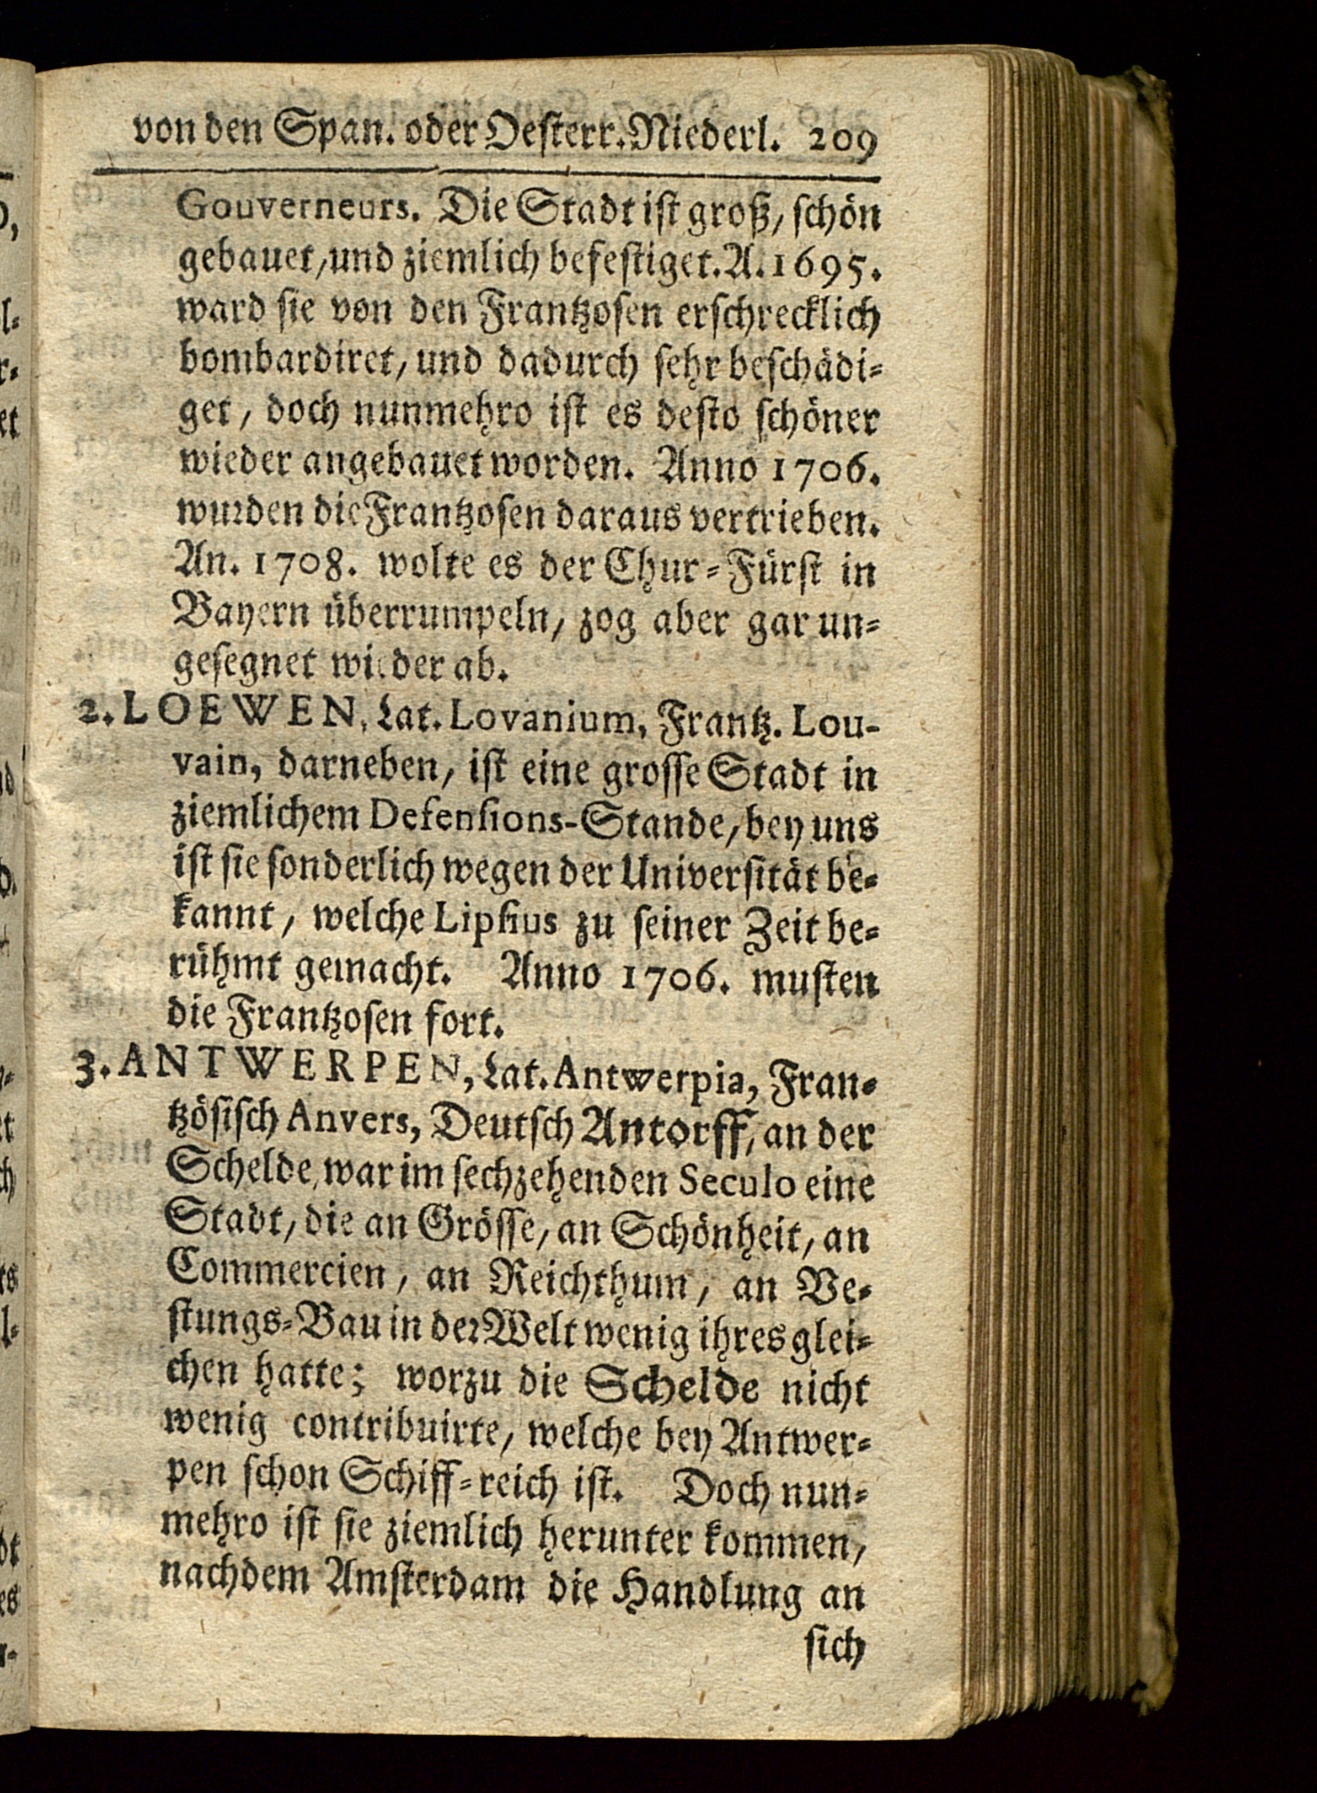 von den Span. oder Oesterr. Niederl. 209
Gouverneurs. Die Stadt ist groß, schön
gebauet, und ziemlich befestiget. A. 1695.
ward sie von den Frantzosen erschrecklich
bombardiret, und dadurch sehr beschädi-
get, doch nunmehro ist es desto schöner
wieder angebauet worden. Anno 1706.
wurden die Frantzosen daraus vertrieben.
An. 1708. wolte es der Chur-Fürst in
Bayern überrumpeln, zog aber gar un-
gesegnet wieder ab.
2. LOEWEN, Lat. Lovanium, Frantz. Lou-
vain, darneben, ist eine grosse Stadt in
ziemlichem Defensions-Stande, bey uns
ist sie sonderlich wegen der Universität be-
kannt, welche Lipsius zu seiner Zeit be-
rühmt gemacht. Anno 1706. musten
die Frantzosen fort.
3. ANTWERPEN, Lat. Antwerpia, Fran-
tzösisch Anvers, Deutsch Antorff, an der
Schelde, war im sechzehenden Seculo eine
Stadt, die an Grösse, an Schönheit, an
Commercien, an Reichthum, an Ve-
stungs-Bau in der Welt wenig ihres glei-
chen hatte; worzu die Schelde nicht
wenig contribuirte, welche bey Antwer-
pen schon Schiff-reich ist. Doch nun-
mehro ist sie ziemlich herunter kommen,
nachdem Amsterdam die Handlung an
sich